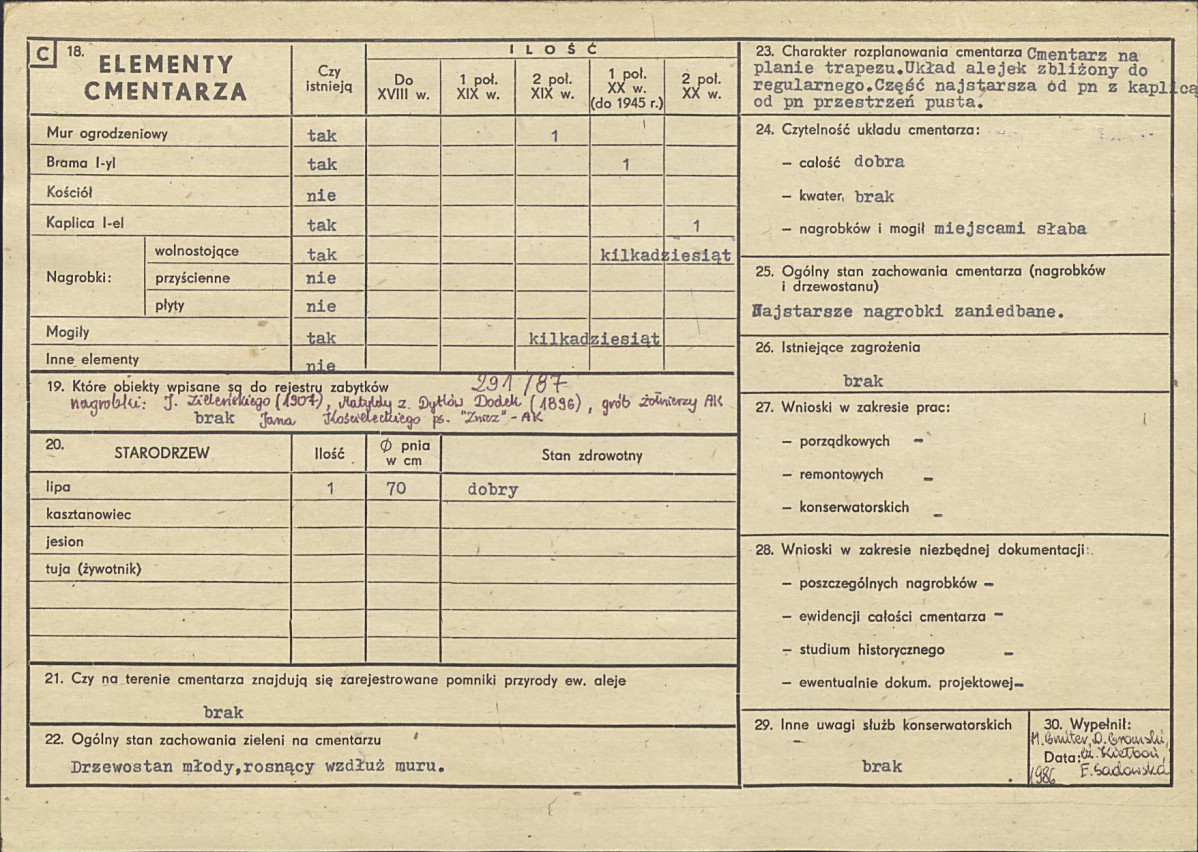 C 18. ELEMENTY CMENTARZA
Czy istnieją
ILOŚĆ
Do XVIII w.
1 poł. XIX w.
2 poł. XIX w.
1 poł. XX w. (do 1945 r.)
2 poł. XX w.
Mur ogrodzeniowy tak 1
Brama I-yl tak 1
Kościół nie
Kaplica I-el tak 1
Nagrobki: wolnostojące tak kilkadziesiąt
przyścienne nie
płyty nie
Mogiły tak kilkadziesiąt
Inne elementy nie
19. Które obiekty wpisane są do rejestru zabytków 291/87
nagrobki: J. Zieleńskiego (1907), Matyldy z Dytlów Dodek (1896), grób żołnierzy AK
brak Jana Kościeleckiego ps. "Znicz" - AK
20. STARODRZEW Ilość Ø pnia w cm Stan zdrowotny
lipa 1 70 dobry
kasztanowiec
jesion
tuja (żywotnik)
21. Czy na terenie cmentarza znajdują się zarejestrowane pomniki przyrody ew. aleje
brak
22. Ogólny stan zachowania zieleni na cmentarzu
Drzewostan młody,rosnący wzdłuż muru.
23. Charakter rozplanowania cmentarza Cmentarz na
planie trapezu.Układ alejek zbliżony do
regularnego.Część najstarsza od pn z kaplicą
od pn przestrzeń pusta.
24. Czytelność układu cmentarza:
– całość dobra
– kwater, brak
– nagrobków i mogił miejscami słaba
25. Ogólny stan zachowania cmentarza (nagrobków
i drzewostanu)
Najstarsze nagrobki zaniedbane.
26. Istniejące zagrożenia
brak
27. Wnioski w zakresie prac:
– porządkowych -
– remontowych -
– konserwatorskich -
28. Wnioski w zakresie niezbędnej dokumentacji:
– poszczególnych nagrobków -
– ewidencji całości cmentarza -
– studium historycznego -
– ewentualnie dokum. projektowej-
29. Inne uwagi służb konserwatorskich
-
brak
30. Wypełnił:
M. Gmiter, D.
Data:
1986 E. Sadowska